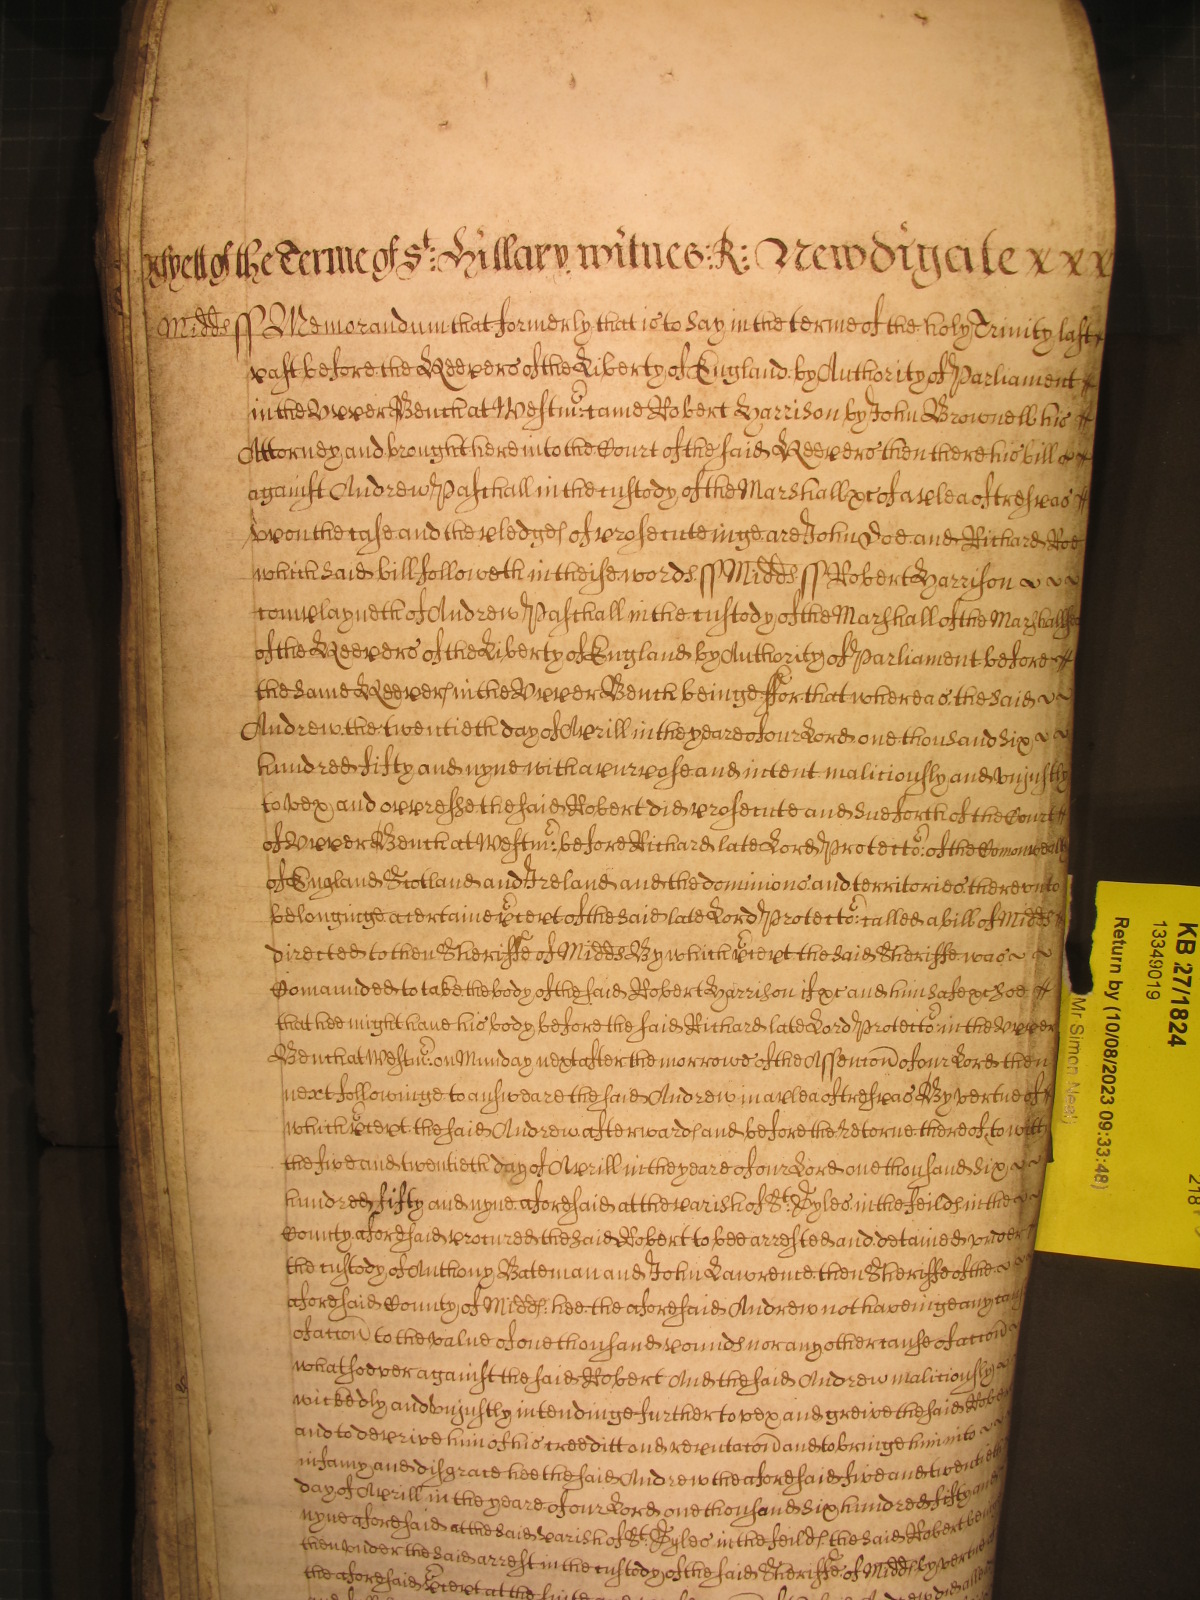 yett of the Terme of St: Hillary witnes: R: Newdigate x x x
Midds ss Memorandum that formerly that is to say in the terme of the holy Trinity last
past before the Keepers of the Liberty of England by Authority of Parliament
in the Upper Bench at Westmr: came Robert Harrison by John Brownell his
Attorney and brought here into the Court of the said Keepers then there his bill
against Andrew Paschall in the custody of the Marshall &c of a plea of trespas
vpon the case and the pledges of prosecuteinge are John Doe and Richard Roe
which said bill followeth in theise words ss Midds ss Robert Harrison
complayneth of Andrew Paschall in the custody of the Marshall of the Marshallsea
of the Keepers of the Liberty of England by Authority of Parliament before
the same Keepers in the Upper Bench beinge ffor that whereas the said
Andrew the twentieth day of Aprill in the yeare of our Lord one thousand six
hundred fifty and nyne with a purpose and intent maliciously and vniustly
to vex and oppresse the said Robert did prosecute and sue forth of the Court
of Upper Bench at Westmr: before Richard late Lord Protector: of the Comonwealth
of England Scotland and Ireland and the dominions and territories therevnto
belonginge a certaine writt of the said late Lord Protector: called a bill of Midds
directed to then Sheriffe of Midds By which writt the said Sheriffe was
Comaunded to take the body of the said Robert Harrison if &c and him safe &c Soe
that hee might haue his body before the said Richard late Lord Protector: in the Upper
Bench at Westmr: on Munday next after the morrowe of the Assencon of our Lord then
next followinge to answeare the said Andrew in a plea of trespas By vertue of
which writt the said Andrew afterwards and before the retorne thereof, to witt
the five and twentieth day of Aprill in the yeare of our Lord one thousand six
hundred fifty and nyne aforesaid at the parish of St. Gyles in the feilds in the
County aforesaid procured the said Robert to bee arrested and detained vnder
the custody of Anthony Bateman and John Lawrence then Sheriffe of the
aforesaid County of Midds: hee the aforesaid Andrew not haveinge any cause
of accon to the value of one thousand pounds nor any other cause of accon
whatsoever against the said Robert And the said Andrew maliciously
wickedly and vniustly intendinge further to vex and greive the said Robert
and to deprive him of his creeditt and reputacon and to bringe him into
infamy and disgrace hee the said Andrew the aforesaid five and twentieth
day of Aprill in the yeare of our Lord one thousand six hundred fifty and
nyne aforesaid at the said parish of St. Gyles in the feilds the said Robert being
then vnder the said arrest in the custody of the said Sheriffe of Midds by vertue
the aforesaid writt at the
KB 27/1824
13349019
Return by (10/08/2023 09:33:48)
Mr Simon Neal